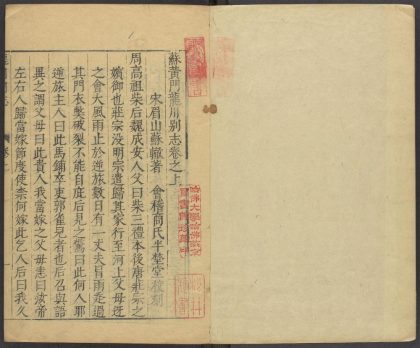 蘇黃門龍川别志卷之上
宋眉山蘇轍著　會稽商氏半埜堂校刻
周高祖柴后魏成安人父曰柴三禮本後唐莊宗之
嬪御也莊宗没明宗遣歸其家行至河上父母迓
之會大風雨止於逆旅數日有一丈夫冒雨走過
其門衣弊破裂不能自庇后見之驚曰此何人耶
逆旅主人曰此馬鋪卒吏郭雀兒者也后召與語
異之謂父母曰此貴人我當嫁之父母恚曰汝帝
左右人歸當嫁節度使奈何嫁此乞人后曰我久